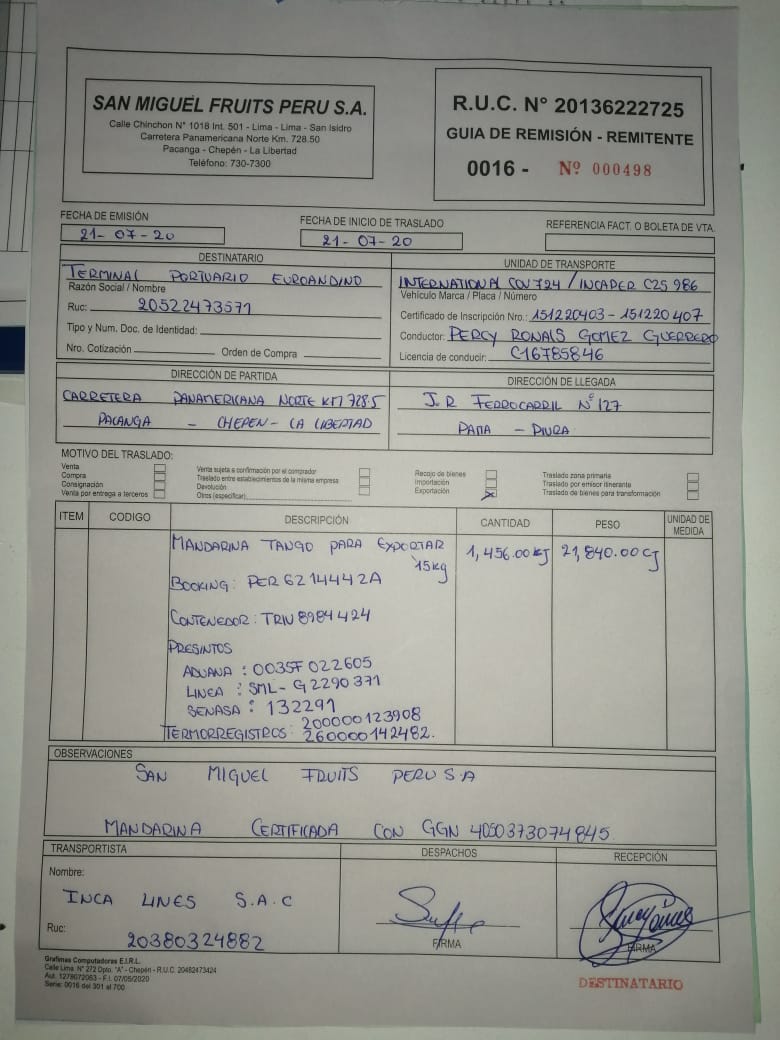 SAN MIGUEL FRUITS PERU S.A.
Calle Chinchon N° 1018 Int. 501 - Lima - Lima - San Isidro
Carretera Panamericana Norte Km. 728.50
Pacanga - Chepén - La Libertad
Teléfono: 730-7300
R.U.C. N° 20136222725
GUIA DE REMISIÓN - REMITENTE
0016 - Nº 000498
FECHA DE EMISIÓN
21-07-20
FECHA DE INICIO DE TRASLADO
21-07-20
REFERENCIA FACT. O BOLETA DE VTA.
DESTINATARIO
TERMINAL PORTUARIO EUROANDINO
Razón Social / Nombre
Ruc: 20522473571
Tipo y Num. Doc. de Identidad:
Nro. Cotización Orden de Compra
UNIDAD DE TRANSPORTE
INTERNATIONAL COV724 / INCAPER C2S 986
Vehículo Marca / Placa / Número
Certificado de Inscripción Nro.: 151220403 - 151220407
Conductor: PERCY RONALS GOMEZ GUERRERO
Licencia de conducir: C16785846
DIRECCIÓN DE PARTIDA
CARRETERA PANAMERICANA NORTE KM 728.5
PACANGA - CHEPEN - LA LIBERTAD
DIRECCIÓN DE LLEGADA
J.R FERROCARRIL Nº127
PAITA - PIURA
MOTIVO DEL TRASLADO:
Venta
Compra
Consignación
Venta por entrega a terceros
Venta sujeta a confirmación por el comprador
Traslado entre establecimientos de la misma empresa
Devolución
Otros (especificar)
Recojo de bienes
Importación
Exportación X
Traslado zona primaria
Traslado por emisor itinerante
Traslado de bienes para transformación
ITEM CODIGO DESCRIPCIÓN CANTIDAD PESO UNIDAD DE MEDIDA
MANDARINA TANGO PARA EXPORTAR 1,456.00 21,840.00
15kg
BOOKING: PER6214442A
CONTENEDOR: TRIU8984424
PRESINTOS
ADUANA : 0035F022605
LINEA : SML-G2290371
SENASA : 132291
TERMORREGISTROS: 200000123908
260000142482.
OBSERVACIONES
SAN MIGUEL FRUITS PERU S.A
MANDARINA CERTIFICADA CON GGN 4050373074845
TRANSPORTISTA
Nombre:
INCA LINES S.A.C
Ruc:
20380324882
DESPACHOS
FIRMA
RECEPCIÓN
FIRMA
Grafimas Computadores E.I.R.L.
Calle Lima N° 272 Dpto. "A" - Chepén - R.U.C. 20482473424
Aut. 1278072063 - F.I. 07/05/2020
Serie: 0016 del 301 al 700
DESTINATARIO